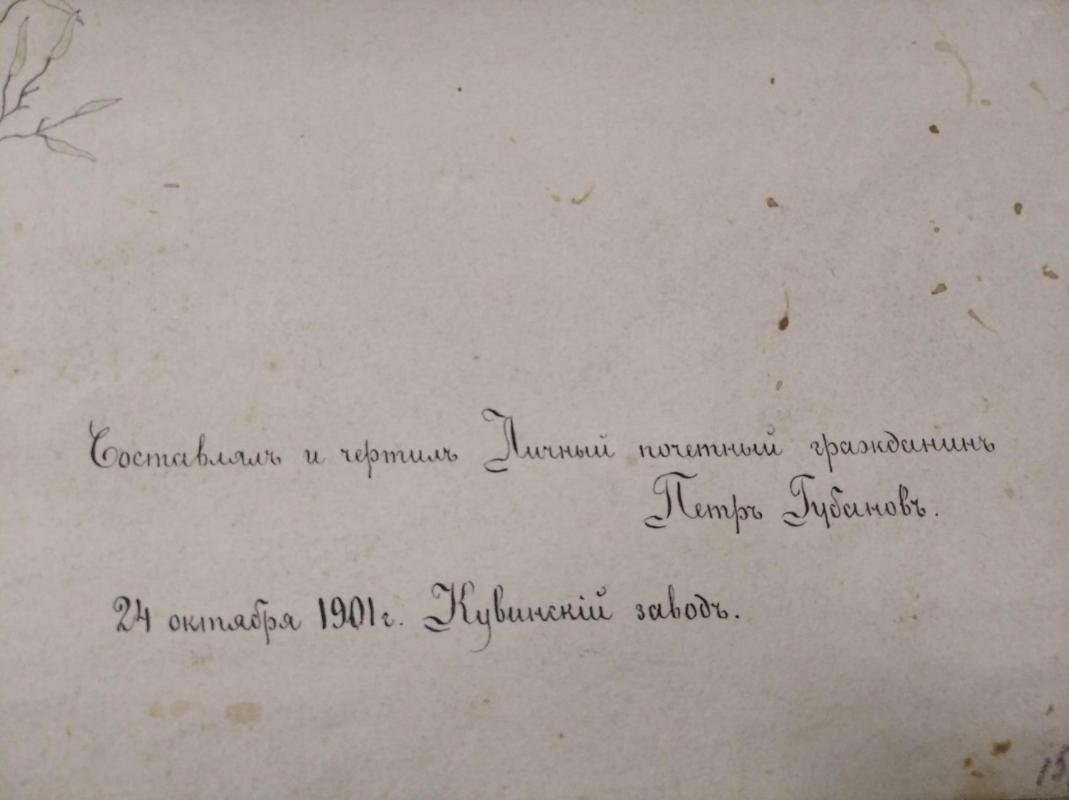 Составлялъ и чертилъ Личный почетный гражданинъ
Петръ Губановъ.
24 октября 1901 г. Кувинскій заводъ.
15